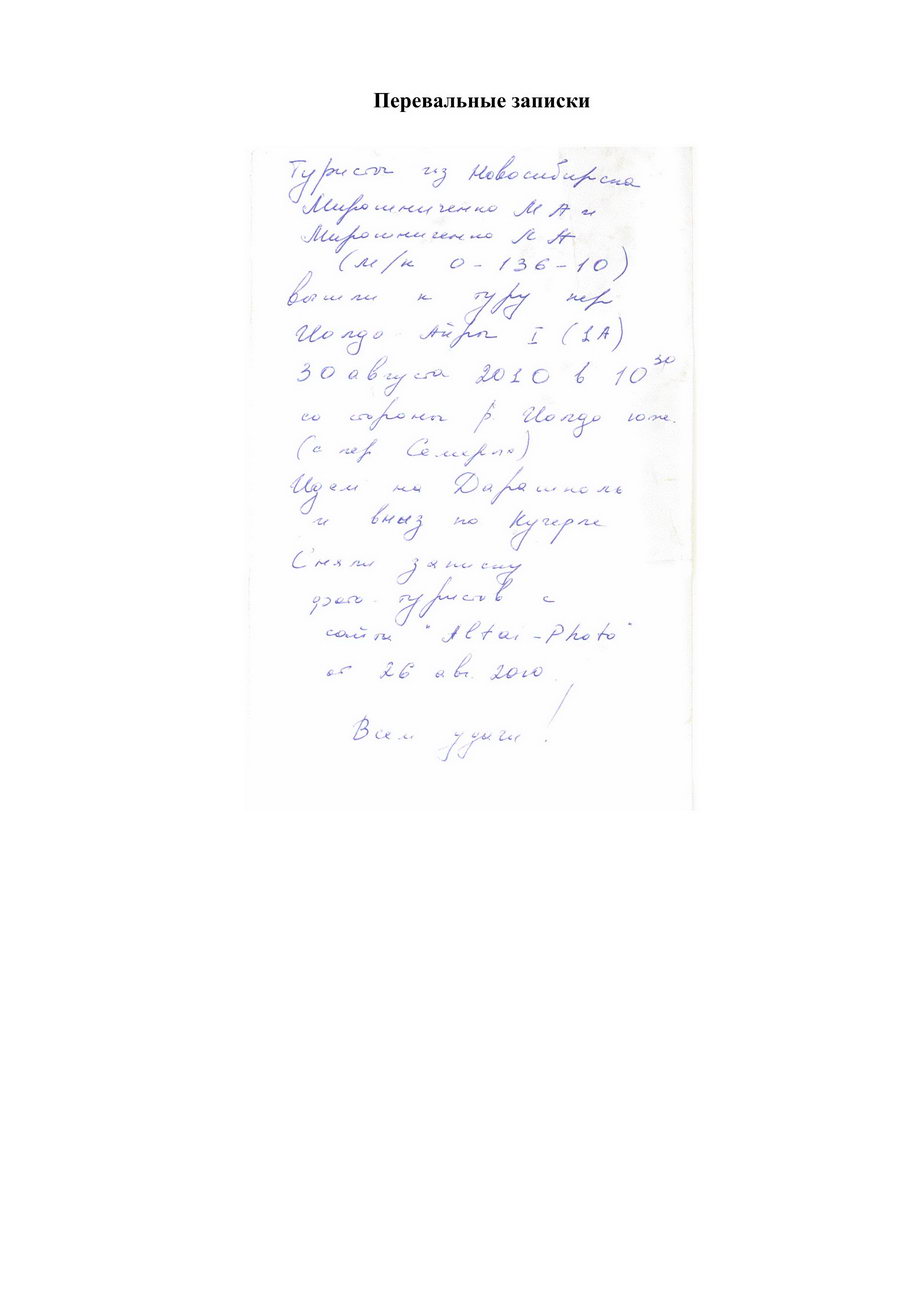 Перевальные записки
Туристы из Новосибирска
Мирошниченко М А и
Мирошниченко Л А
(м/к 0-136-10)
вышли к туру пер
Иолдо-Айры I (1А)
30 августа 2010 в 10 30
со стороны р Иолдо юж.
(с пер
Идем на Дарашколь
и вниз по Кучерле
Сняли записку
фото-туристов с
сайта "Altai-Photo"
от 26 авг. 2010.
Всем удачи!